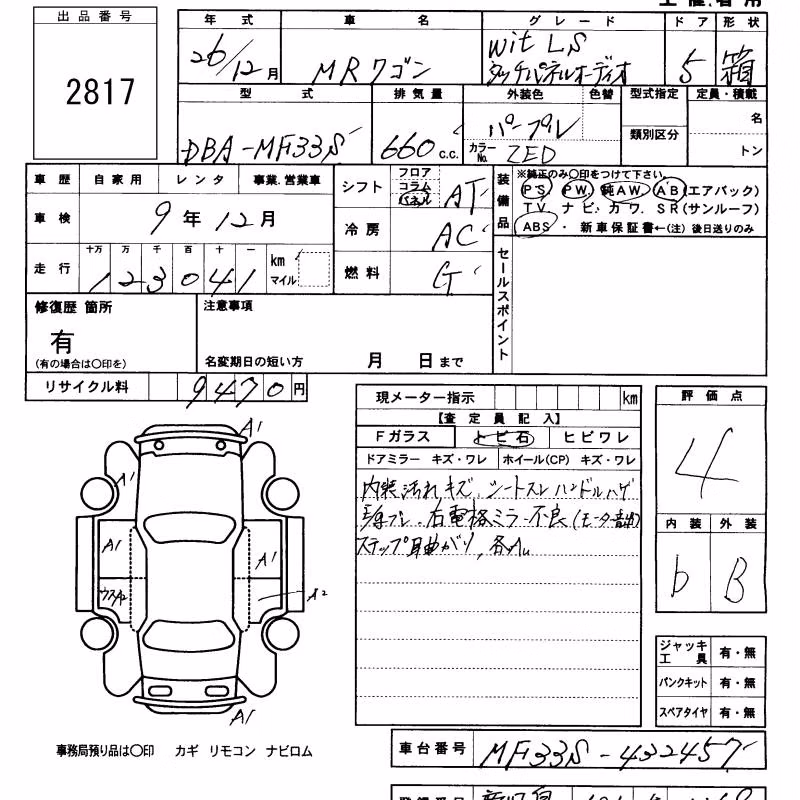 出品番号
2817
年式 車名 グレード ドア 形状
26/12月 MRワゴン Wit LS タッチパネルオーディオ 5 箱
型式 排気量 外装色 色替 型式指定 定員・積載
DBA-MF33S 660 c.c. パープル 名
カラーNo. ZED 類別区分 トン
車歴 自家用 レンタ 事業.営業車
車検 9年12月
走行 十万 万 千 百 十 一 km マイル
123041
シフト フロア コラム パネル AT
冷房 AC
燃料 G
装備品 ※純正のみ〇印をつけて下さい。
PS PW 純AW AB(エアバック)
TV ナビ カワ SR(サンルーフ)
ABS ・ 新車保証書←(注) 後日送りのみ
セールスポイント
修復歴 箇所
有
(有の場合は〇印を)
注意事項
名変期日の短い方 月 日まで
リサイクル料 9470円
現メーター指示 km
【査定員記入】
Fガラス トビ石 ヒビワレ
ドアミラー キズ・ワレ ホイール(CP) キズ・ワレ
内装汚れキズ、シートスレ ハンドルハゲ
右電格ミラー不良(モーター音有)
ステップ耳曲がり、各A
評価点
4
内装 外装
b B
A1
A1
A1
A1
ウスA2
A2
A1
ジャッキ工具 有・無
パンクキット 有・無
スペアタイヤ 有・無
事務局預り品は〇印 カギ リモコン ナビロム
車台番号 MF33S-432457